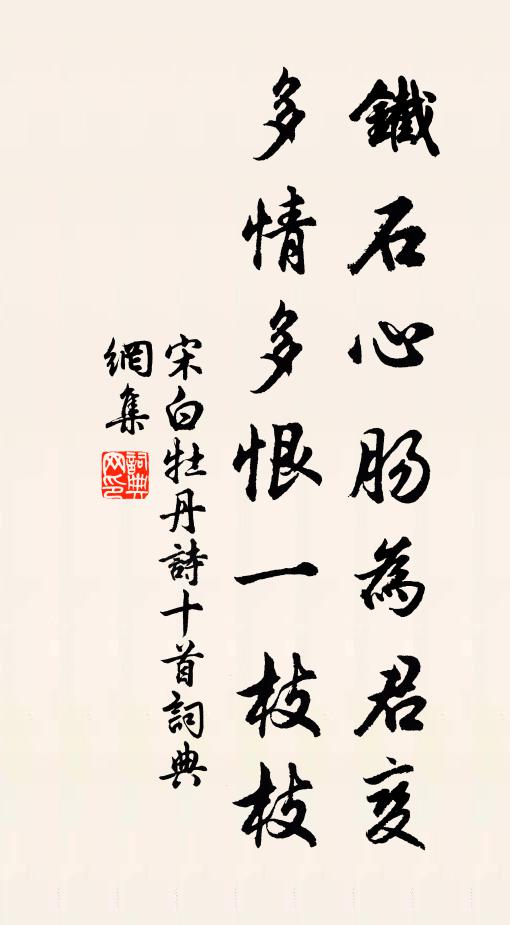 鐵石心腸為君變
多情多恨一枝枝
宋白牡丹詩十首詞典
網集
詞典網印